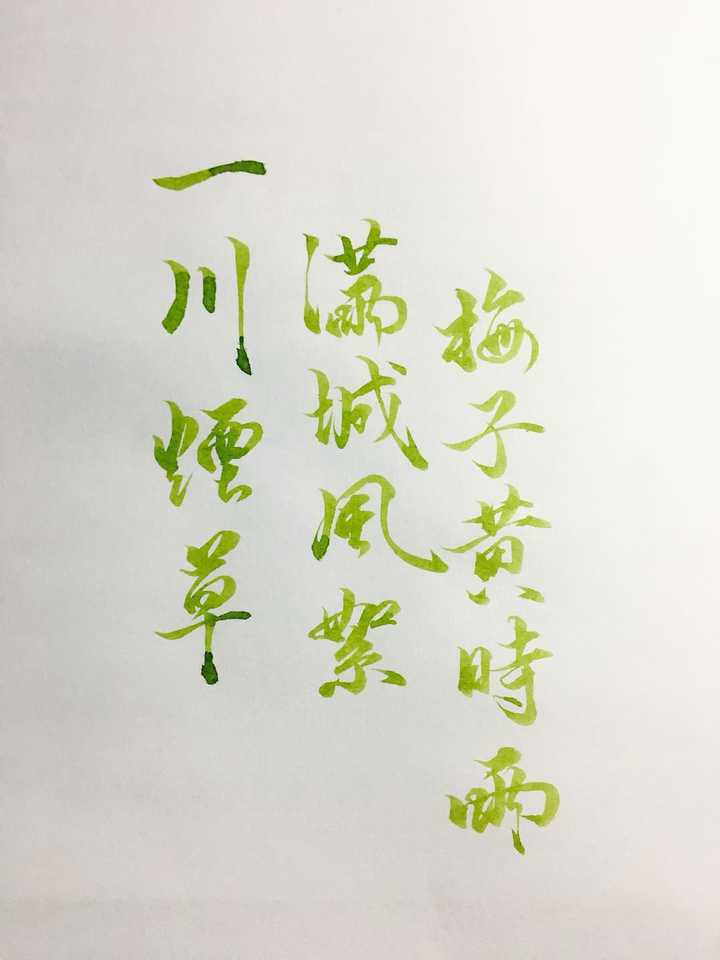 一川煙草
滿城風絮
梅子黃時雨